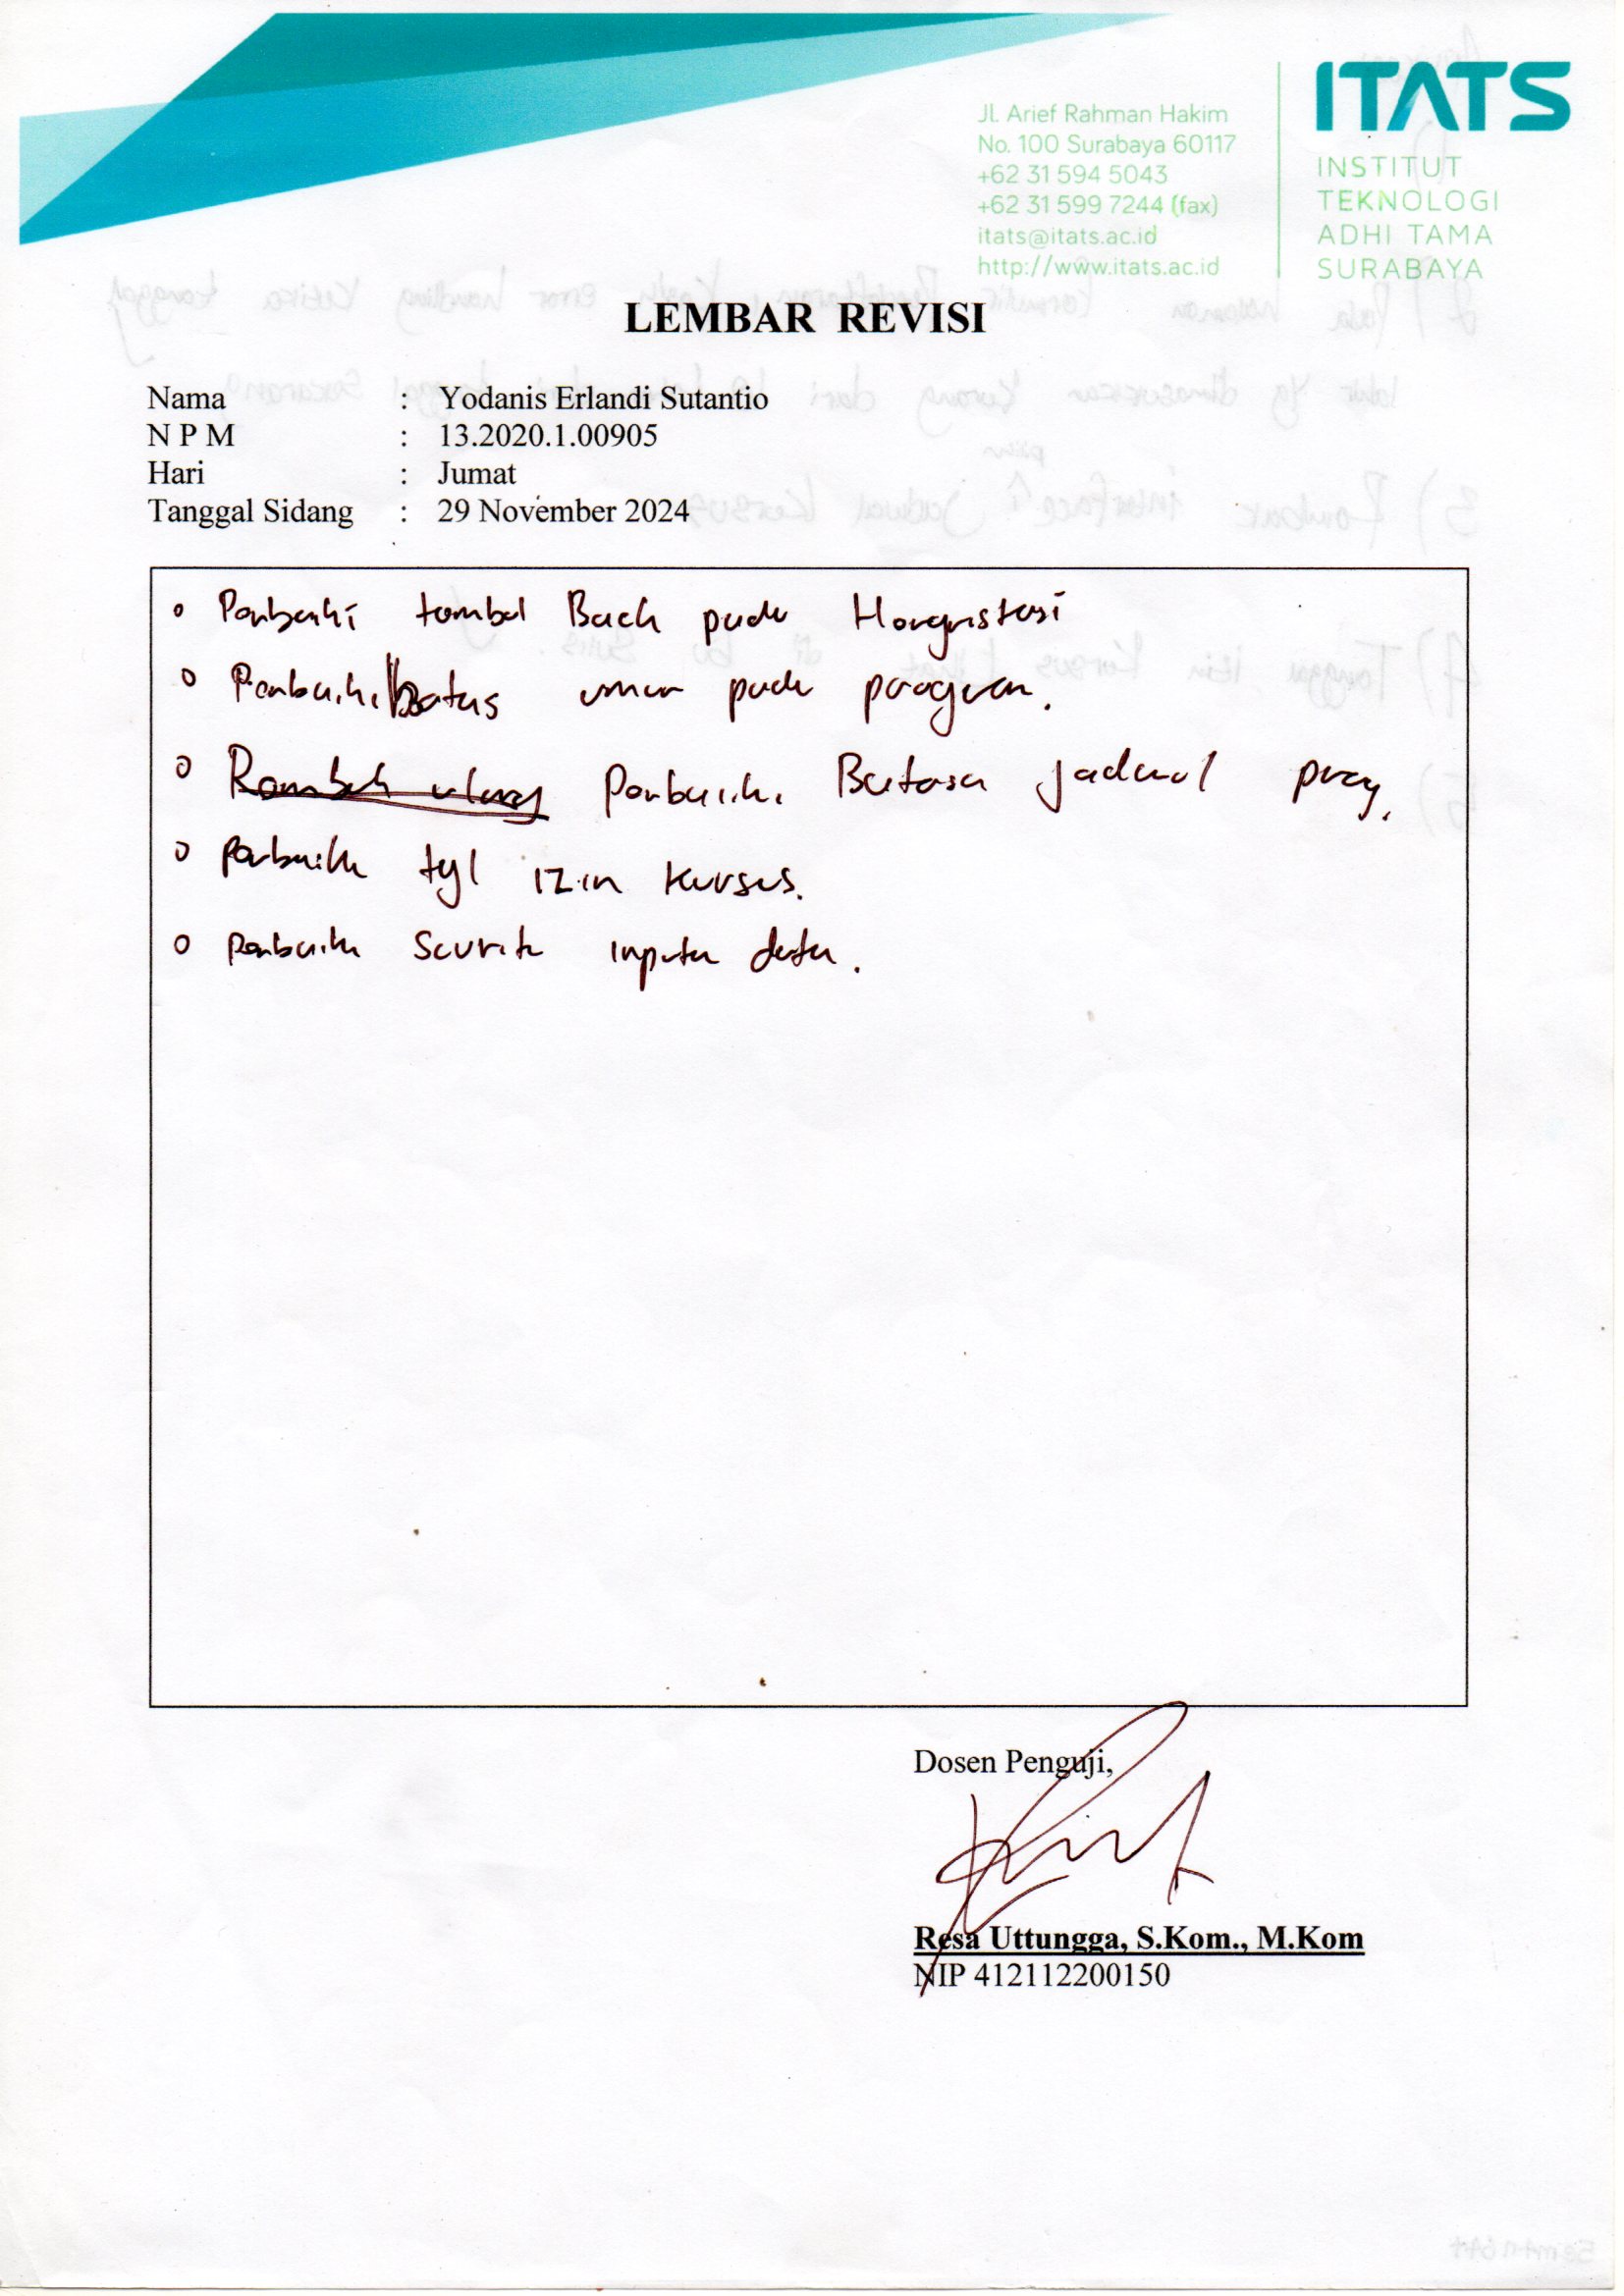 Jl. Arief Rahman Hakim
No. 100 Surabaya 60117
+62 31 594 5043
+62 31 599 7244 (fax)
itats@itats.ac.id
http://www.itats.ac.id
ITATS
INSTITUT
TEKNOLOGI
ADHI TAMA
SURABAYA
LEMBAR REVISI
Nama : Yodanis Erlandi Sutantio
N P M : 13.2020.1.00905
Hari : Jumat
Tanggal Sidang : 29 November 2024
Perbaiki tombol Back pada
Perbaiki batas umur pada program.
Perbaiki jadwal
Perbaiki tgl izin kursus.
Perbaiki data.
Dosen Penguji,
Resa Uttungga, S.Kom., M.Kom
NIP 412112200150